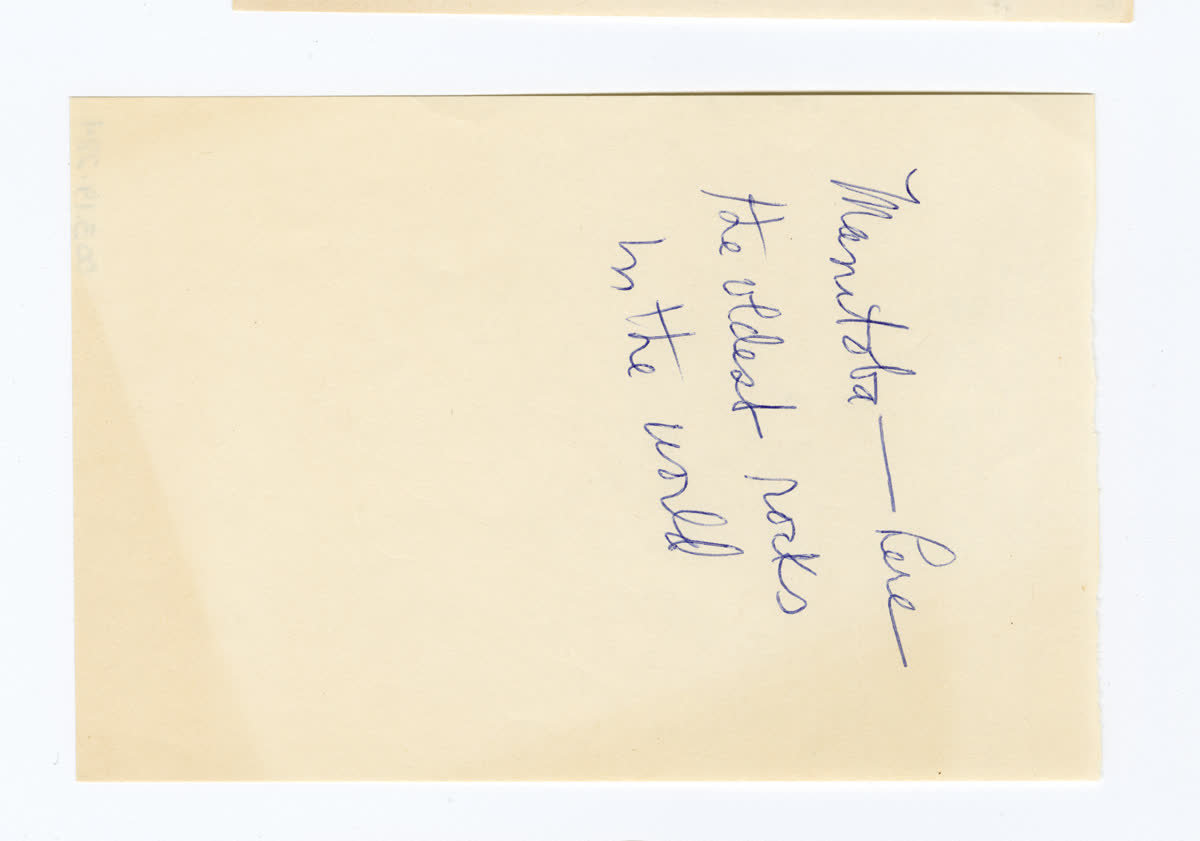 Manitoba — here
the oldest rocks
in the world